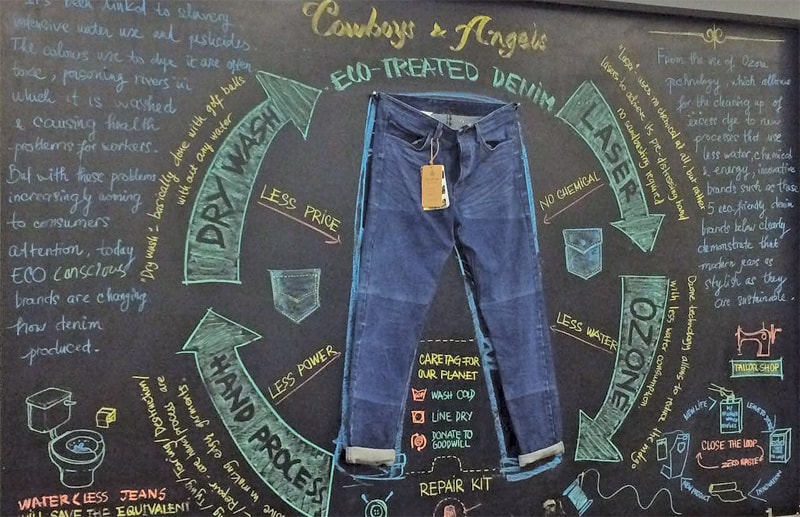 Cowboys & Angels
ECO-TREATED DENIM
It's been linked to slavery
intensive water use and pesticides.
The colours use to dye it are often
toxic, poisoning rivers in
which it is washed
& causing health
problems for workers.
But with these problems
increasingly coming
to consumers
attention, today
ECO conscious
brands are changing
how denim
produced.
From the use of Ozone
technology, which allows
for the cleaning up of
excess dye to new
processes that use
less water, chemical
& energy, innovative
brands such as these
5 eco-friendly denim
brands below clearly
demonstrate that
modern jeans as
stylish as they
are sustainable.
DRY WASH
"Dry wash" = basically done with golf balls
with out any water
LASER
"Laser" uses no chemical at all, but rather
lasers to achieve its pre-distressing hand
no sandblasting required
OZONE
Ozone technology allow to reduce the indigo
with less water consumption.
HAND PROCESS
LESS PRICE
NO CHEMICAL
LESS WATER
LESS POWER
CARE TAG FOR
OUR PLANET
WASH COLD
LINE DRY
DONATE TO
GOODWILL
REPAIR KIT
WATER<LESS JEANS
WILL SAVE THE EQUIVALENT
TAILOR SHOP
NEW LIFE
CLOSE THE LOOP
ZERO WASTE
NEW PRODUCT